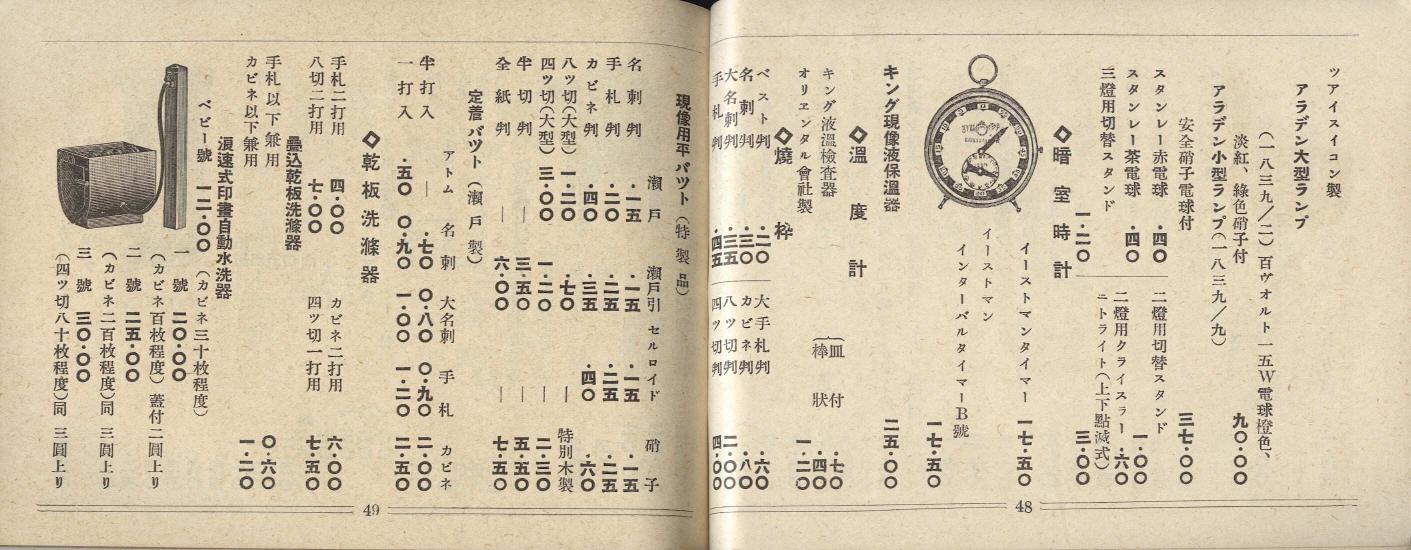 ツアイスイコン製
アラデン大型ランプ
(一八三九/二)百ヴオルト一五W電球橙色、
淡紅、綠色硝子付 九〇・〇〇
アラデン小型ランプ(一八三九/九)
安全硝子電球付 三七・〇〇
スタンレー赤電球 ・四〇
スタンレー茶電球 ・四〇
三燈用切替スタンド 一・二〇
二燈用切替スタンド 一・〇〇
二燈用クライスラー ・六〇
ニトライト(上下點滅式) 三・〇〇
◇暗室時計
イーストマンタイマー 一七・五〇
イーストマン
インターバルタイマーB號 一七・五〇
キング現像液保溫器 二五・〇〇
◇溫度計
キング液溫檢査器
オリエンタル會社製
皿付 ・七〇
棒狀 ・四〇
一・二〇
◇燒枠
ベスト判 ・二〇
名刺判 ・三〇
大名刺判 ・三五
手札判 ・四五
大手札判 ・六〇
カビネ判 ・八〇
八ツ切判 二・〇〇
四ツ切判 四・〇〇
48
現像用平バツト(特製品)
瀨戶 瀨戶引 セルロイド 硝子
名刺判 ・一五 ・一五 ・一五 ・一五
手札判 ・二〇 ・二五 ・二五 ・二五
カビネ判 ・四〇 ・三五 ・四〇 ・六〇
八ツ切(大型) 一・二〇 ・七〇 — 特別木製
四ツ切(大型) 三・〇〇 一・二〇 — 二・三〇
半切判 — 三・五〇 — 五・五〇
全紙判 — 六・〇〇 — 七・五〇
定着バツト(瀨戶製)
アトム 名刺 大名刺 手札 カビネ
半打入 — ・七〇 〇・八〇 〇・九〇 二・〇〇
一打入 ・五〇 〇・九〇 一・〇〇 一・二〇 二・五〇
◇乾板洗滌器
手札二打用 四・〇〇 カビネ二打用 六・〇〇
八切二打用 七・〇〇 四ツ切一打用 七・五〇
疊込乾板洗滌器
手札以下兼用 〇・六〇
カビネ以下兼用 一・二〇
浪速式印畫自動水洗器
ベビー號 一二・〇〇 (カビネ三十枚程度)
一號 二〇・〇〇
(カビネ百枚程度)蓋付二圓上リ
二號 二五・〇〇
(カビネ二百枚程度)同 三圓上リ
三號 三〇・〇〇
(四ツ切八十枚程度)同 三圓上リ
49